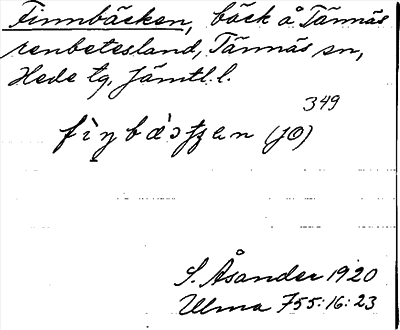 Finnbäcken, bäck å Tännäs
renbetesland, Tännäs sn,
Hede tg, Jämtl. l.
349
(JO)
S. Åsander 1920
Ulma 755:16:23